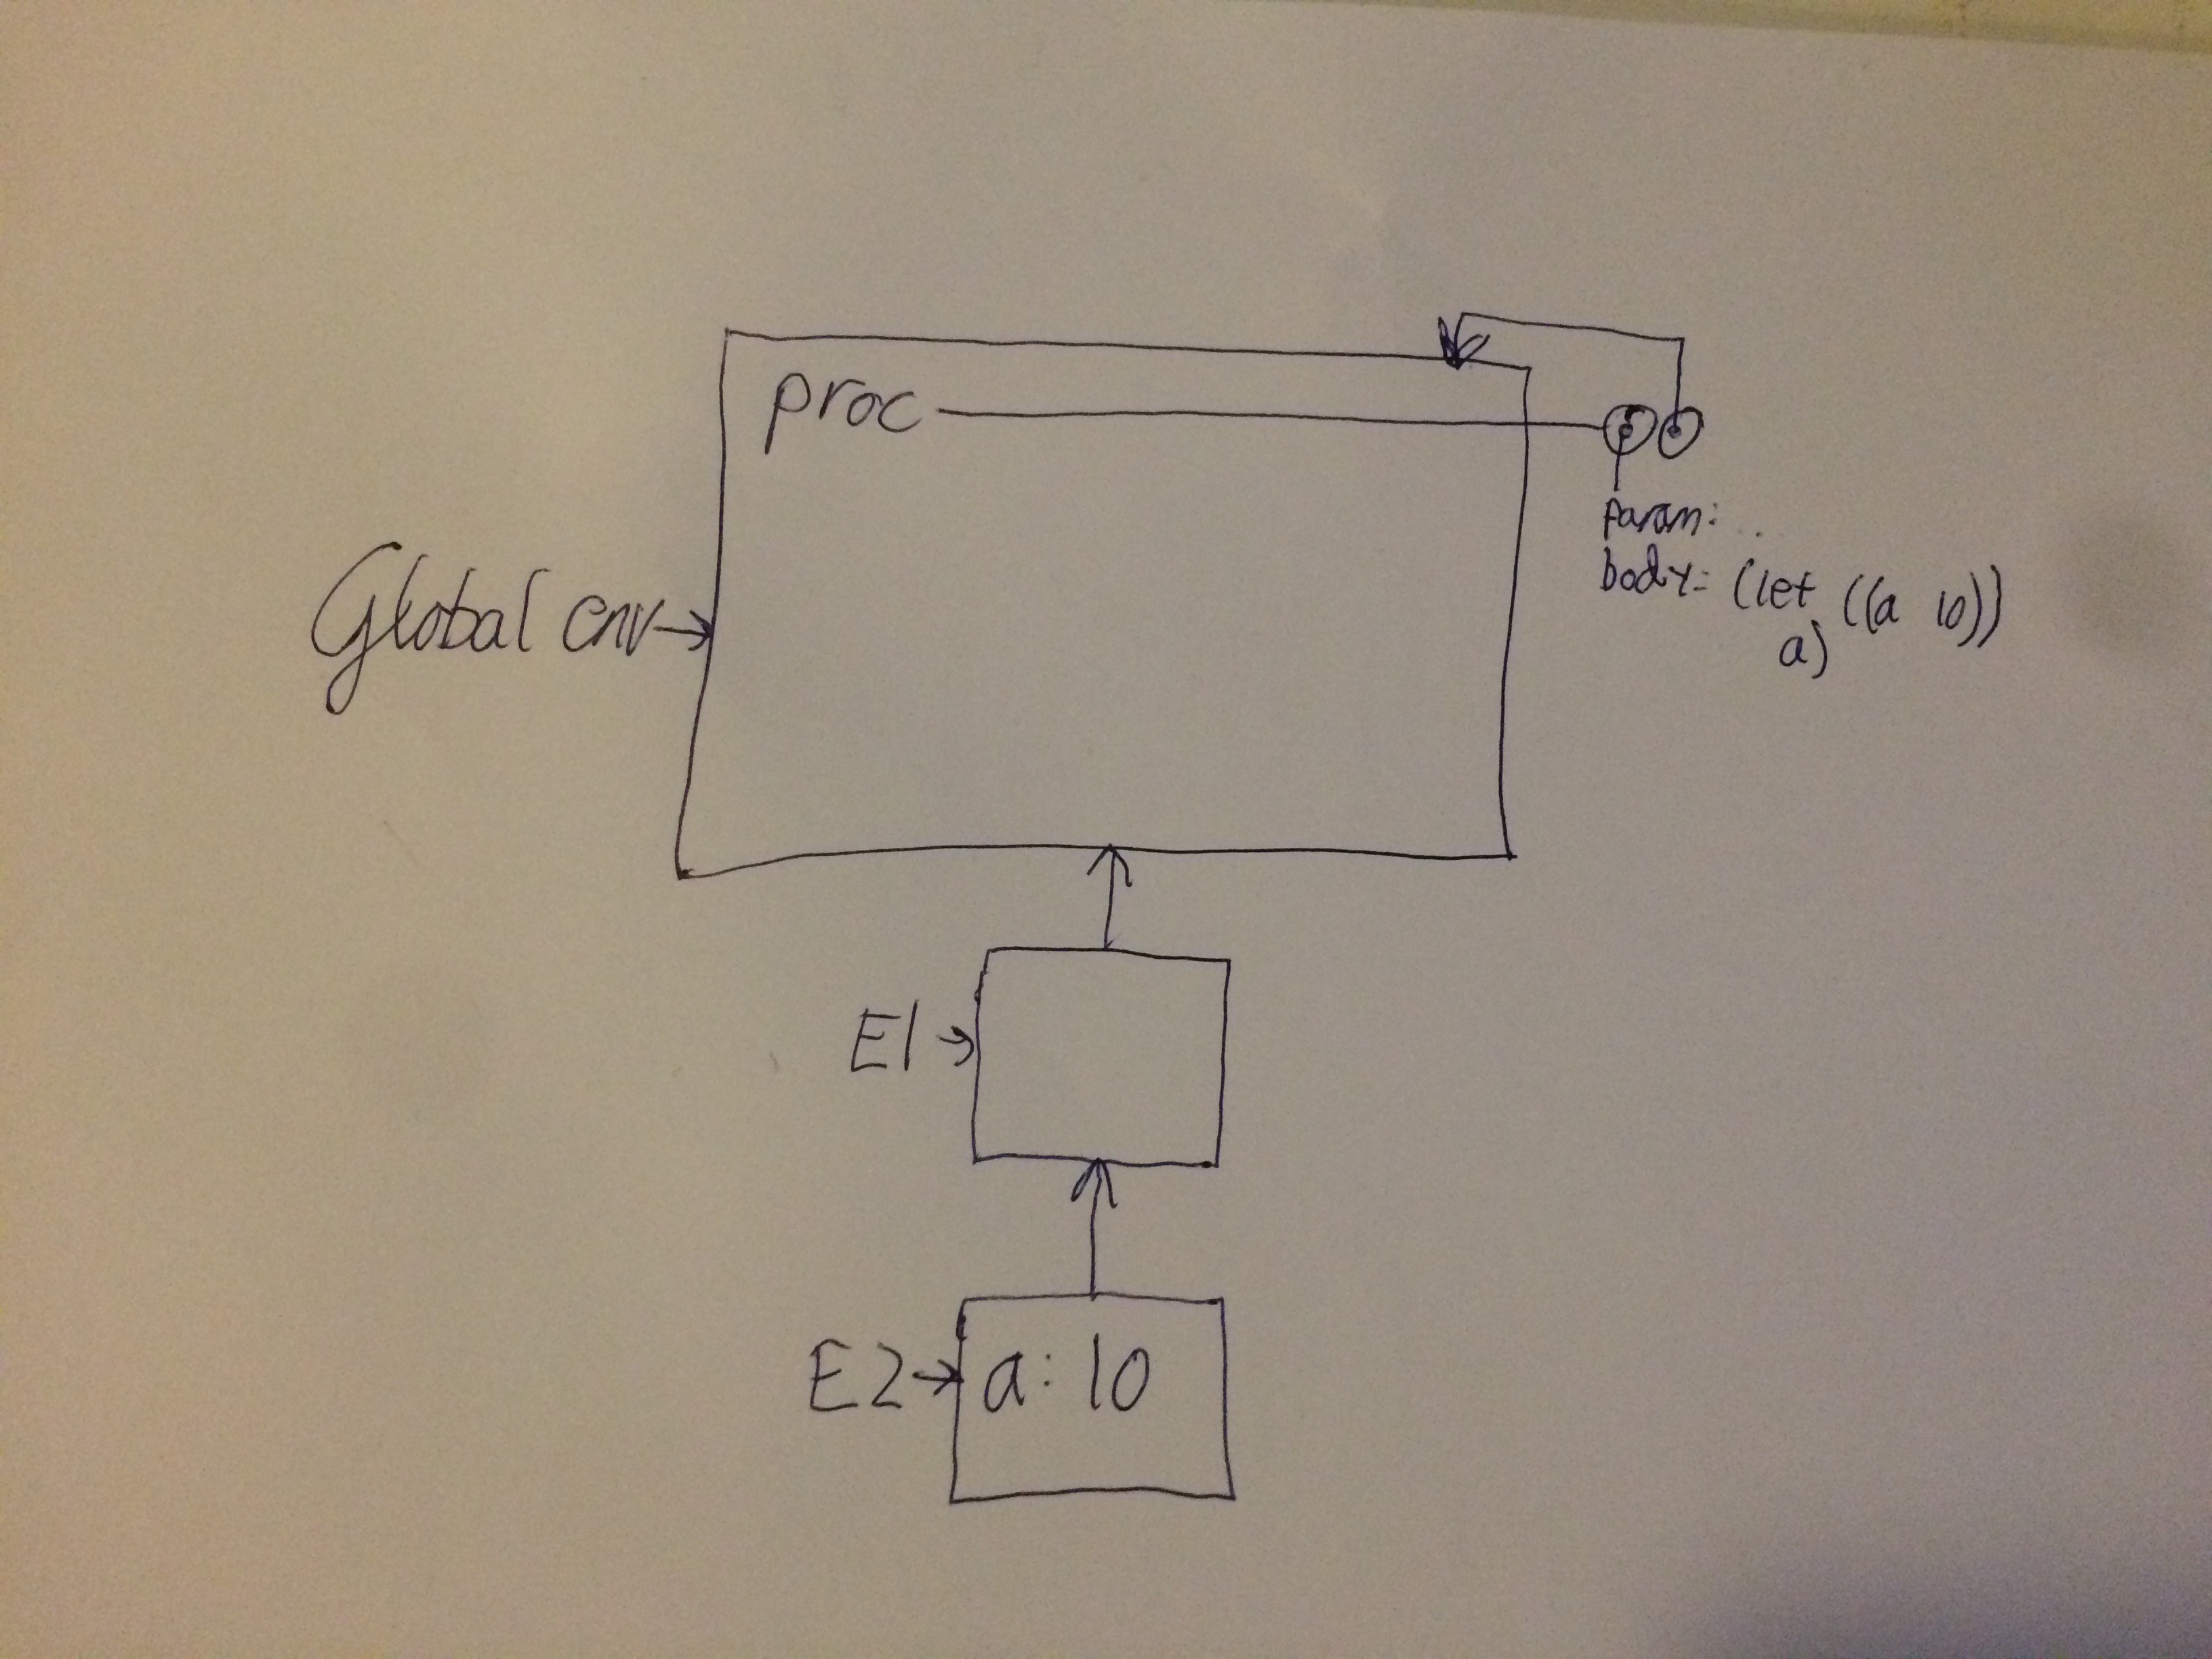 Global env→
proc
param: ..
body: (let ((a 10))
a)
E1→
E2→
a: 10